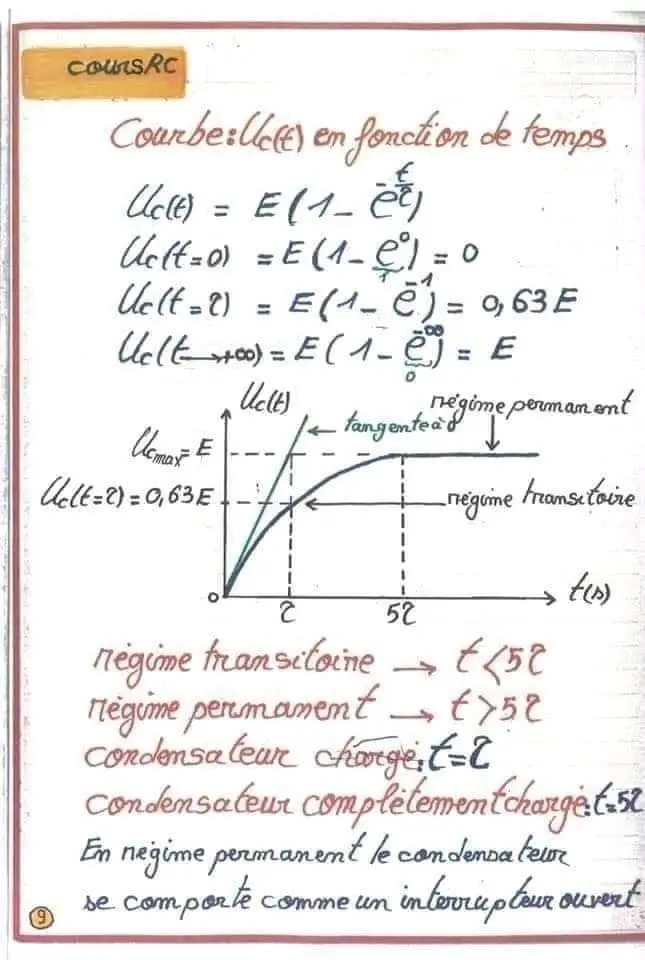 cours RC
Courbe: Uc(t) en fonction de temps
Uc(t) = E(1 - e^-t/τ)
Uc(t=0) = E(1 - e^0) = 0
1
Uc(t=τ) = E(1 - e^-1) = 0,63E
Uc(t→+∞) = E(1 - e^-∞) = E
0
Uc(t)
régime permanent
tangente à 0
Ucmax = E
Uc(t=τ) = 0,63E
régime transitoire
0
τ
5τ
t(s)
régime transitoire → t<5τ
régime permanent → t>5τ
condensateur chargé: t=τ
condensateur complètement chargé: t=5τ
En régime permanent le condensateur
se comporte comme un interrupteur ouvert
9